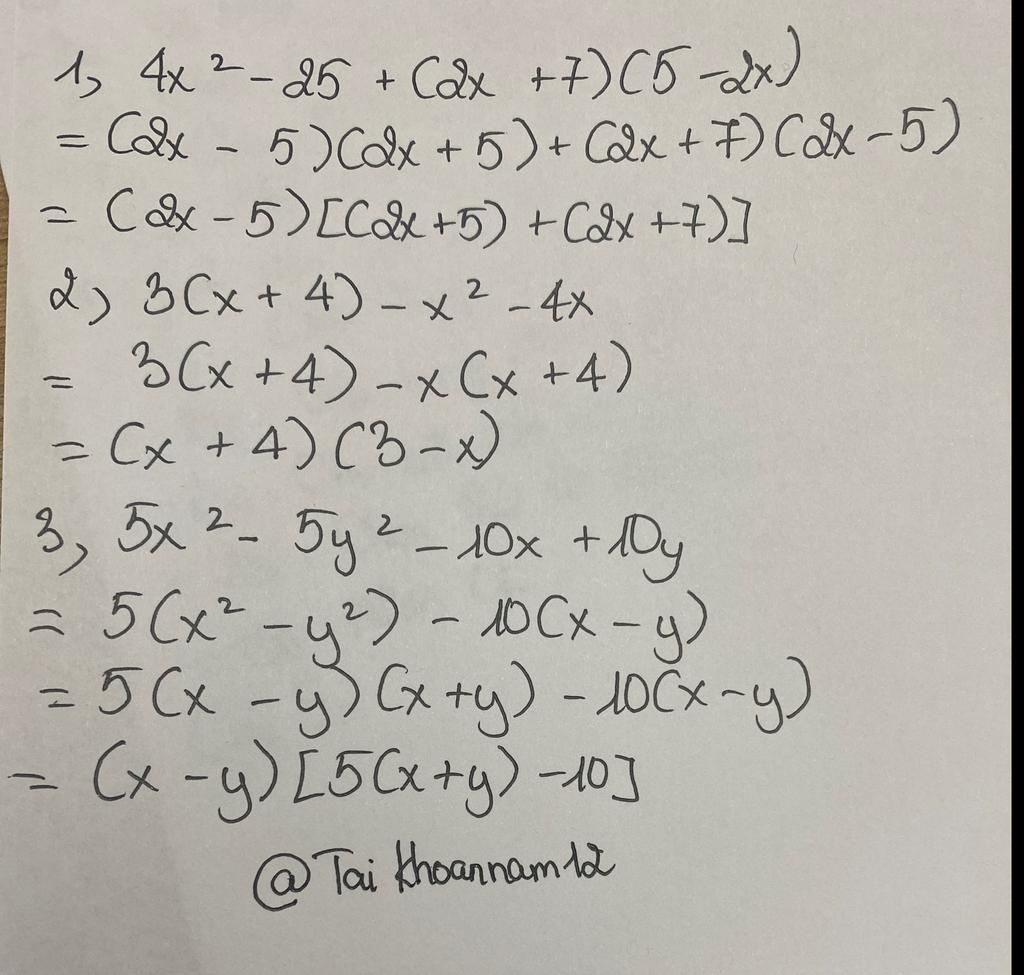 1, 4x² - 25 + (2x + 7)(5 - 2x)
= (2x - 5)(2x + 5) + (2x + 7)(2x - 5)
= (2x - 5)[(2x + 5) + (2x + 7)]
2, 3(x + 4) - x² - 4x
= 3(x + 4) - x(x + 4)
= (x + 4)(3 - x)
3, 5x² - 5y² - 10x + 10y
= 5(x² - y²) - 10(x - y)
= 5(x - y)(x + y) - 10(x - y)
= (x - y)[5(x + y) - 10]
@Tai khoannam12